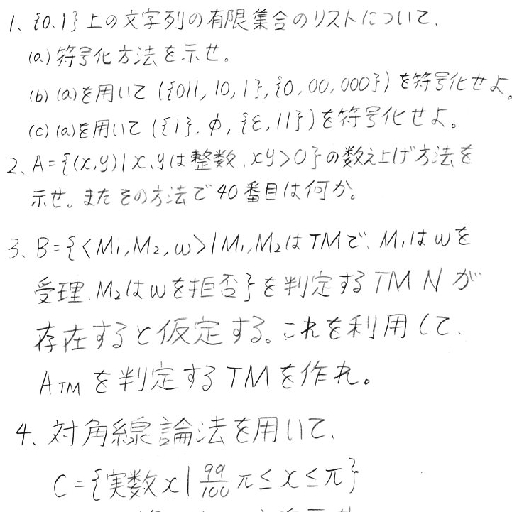 1、{0,1}上の文字列の有限集合のリストについて、
(a)符号化方法を示せ。
(b)(a)を用いて({011, 10, 1},{0, 00, 000})を符号化せよ。
(c)(a)を用いて({1}, φ, {ε, 11})を符号化せよ。
2、A={(x,y)|x,yは整数、xy>0}の数え上げ方法を
示せ。またその方法で40番目は何か。
3、B={<M₁,M₂,w>|M₁,M₂はTMで、M₁はwを
受理、M₂はwを拒否}を判定するTM Nが
存在すると仮定する。これを利用して、
A_TMを判定するTMを作れ。
4、対角線論法を用いて、
C={実数x|99/100 π≤x≤π}